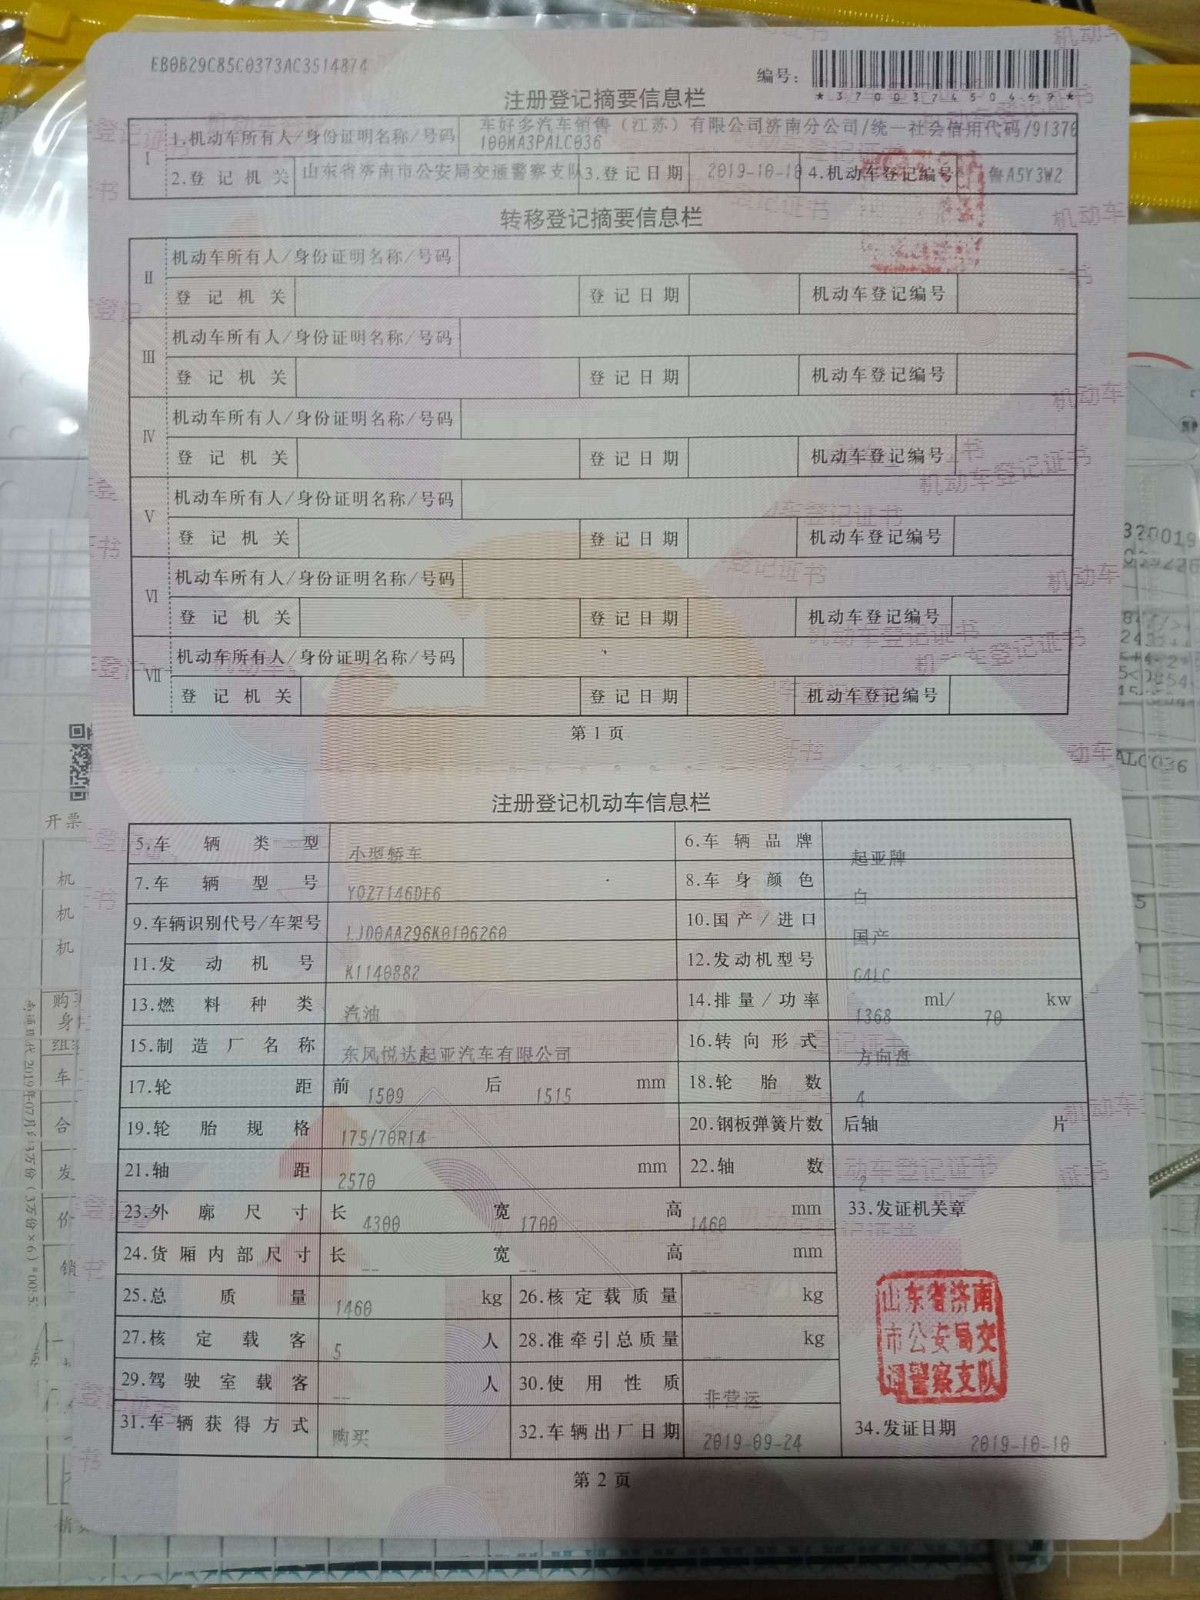 EB0B29C85C0373AC3514874
编号:
*370037450449*
注册登记摘要信息栏
I
1.机动车所有人/身份证明名称/号码 车好多汽车销售（江苏）有限公司济南分公司/统一社会信用代码/91370
100MA3PALC036
2.登记机关 山东省济南市公安局交通警察支队 3.登记日期 2019-10-10 4.机动车登记编号 鲁A5Y3W2
转移登记摘要信息栏
II 机动车所有人/身份证明名称/号码
登记机关 登记日期 机动车登记编号
III 机动车所有人/身份证明名称/号码
登记机关 登记日期 机动车登记编号
IV 机动车所有人/身份证明名称/号码
登记机关 登记日期 机动车登记编号
V 机动车所有人/身份证明名称/号码
登记机关 登记日期 机动车登记编号
VI 机动车所有人/身份证明名称/号码
登记机关 登记日期 机动车登记编号
VII 机动车所有人/身份证明名称/号码
登记机关 登记日期 机动车登记编号
第1页
注册登记机动车信息栏
5.车辆类型 小型轿车 6.车辆品牌 起亚牌
7.车辆型号 YQZ7146DE6 8.车身颜色 白
9.车辆识别代号/车架号 LJD0AA296K0106260 10.国产/进口 国产
11.发动机号 K1140882 12.发动机型号 G4LC
13.燃料种类 汽油 14.排量/功率 1368 ml/ 70 kw
15.制造厂名称 东风悦达起亚汽车有限公司 16.转向形式 方向盘
17.轮距 前 1509 后 1515 mm 18.轮胎数 4
19.轮胎规格 175/70R14 20.钢板弹簧片数 后轴 片
21.轴距 2570 mm 22.轴数 2
23.外廓尺寸 长 4300 宽 1700 高 1460 mm 33.发证机关章
24.货厢内部尺寸 长 -- 宽 -- 高 -- mm
25.总质量 1460 kg 26.核定载质量 -- kg
27.核定载客 5 人 28.准牵引总质量 -- kg
29.驾驶室载客 -- 人 30.使用性质 非营运
31.车辆获得方式 购买 32.车辆出厂日期 2019-09-24 34.发证日期 2019-10-10
山东省济南
市公安局交
通警察支队
第2页